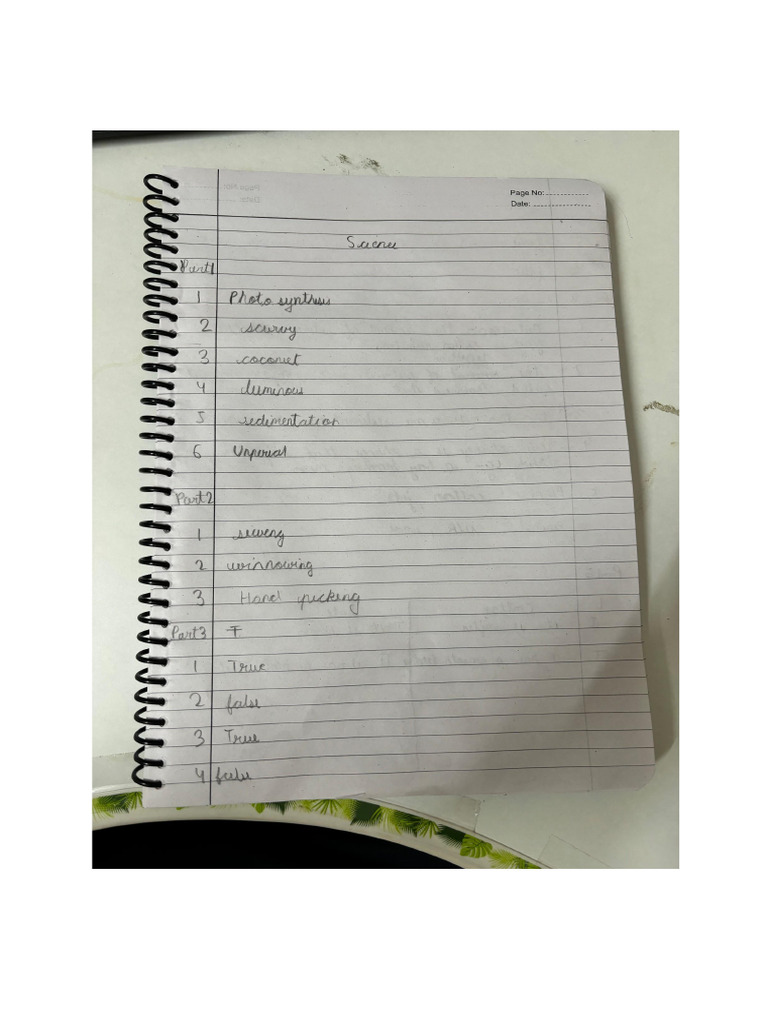 Page No:
Date:
Science
Part1
1 Photosynthesis
2 scurvy
3 coconut
4 luminous
5 sedimentation
6
Part2
1
2 winnowing
3 Hand picking
Part3 T
1 True
2 false
3 True
4 false